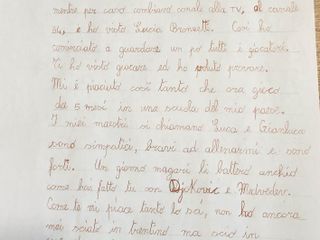 mentre per caso cambiavo canale alla TV, al canale
64, e ho visto Lucia Bronzetti. Così ho
cominciato a guardare un po' tutti i giocatori.
Ti ho visto giocare ed ho voluto provare.
Mi è piaciuto così tanto che ora gioco
da 5 mesi in una scuola del mio paese.
I miei maestri si chiamano Luca e Gianluca
sono simpatici, bravi ad allenarmi e sono
forti. Un giorno magari li batterò anch'io
come hai fatto tu con Djkovic e Medvedev.
Come te mi piace tanto lo sci, non ho ancora
mai sciato in trentino ma scio in